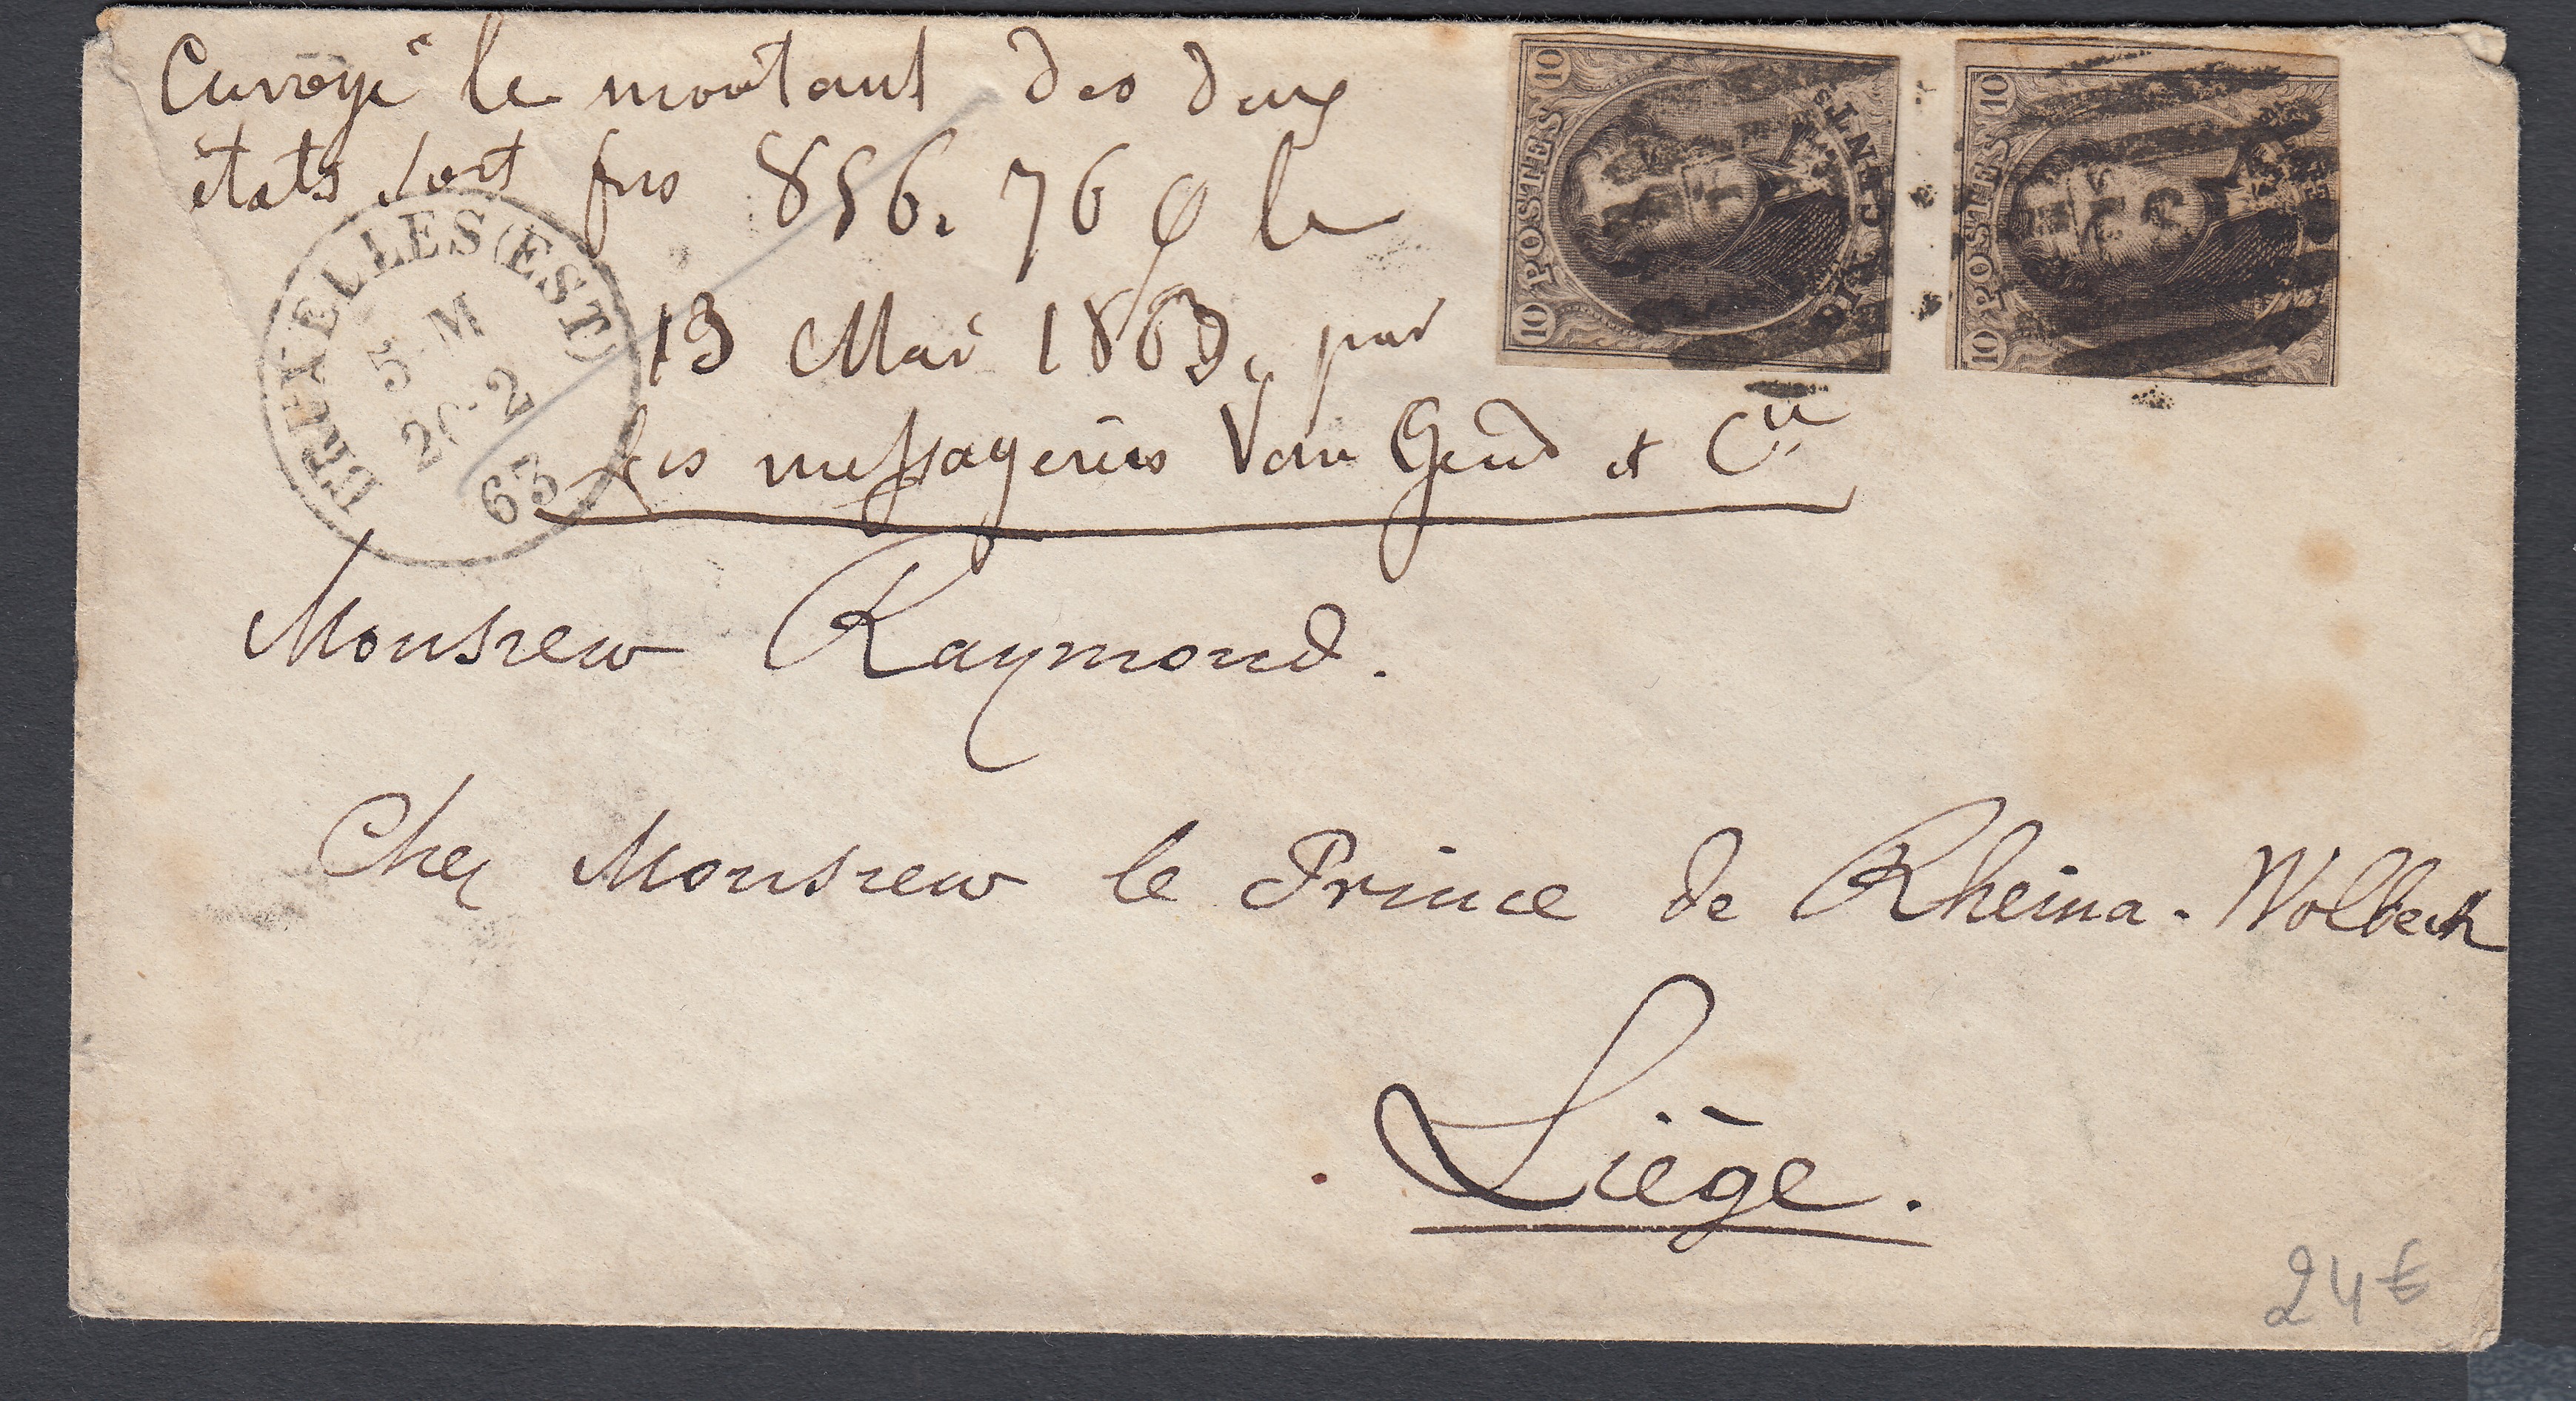 Envoyé le montant des deux
états soit frs 856. 76 c le
13 Mai 1863, par
les messageries Van Gend et Cie
BRUXELLES (EST)
5-M
20-2
63
10 POSTES 10
DIX CENTS
10 POSTES 10
Monsieur Raymond.
Chez Monsieur le Prince de Rheina-Wolbeck
Liège.
24€